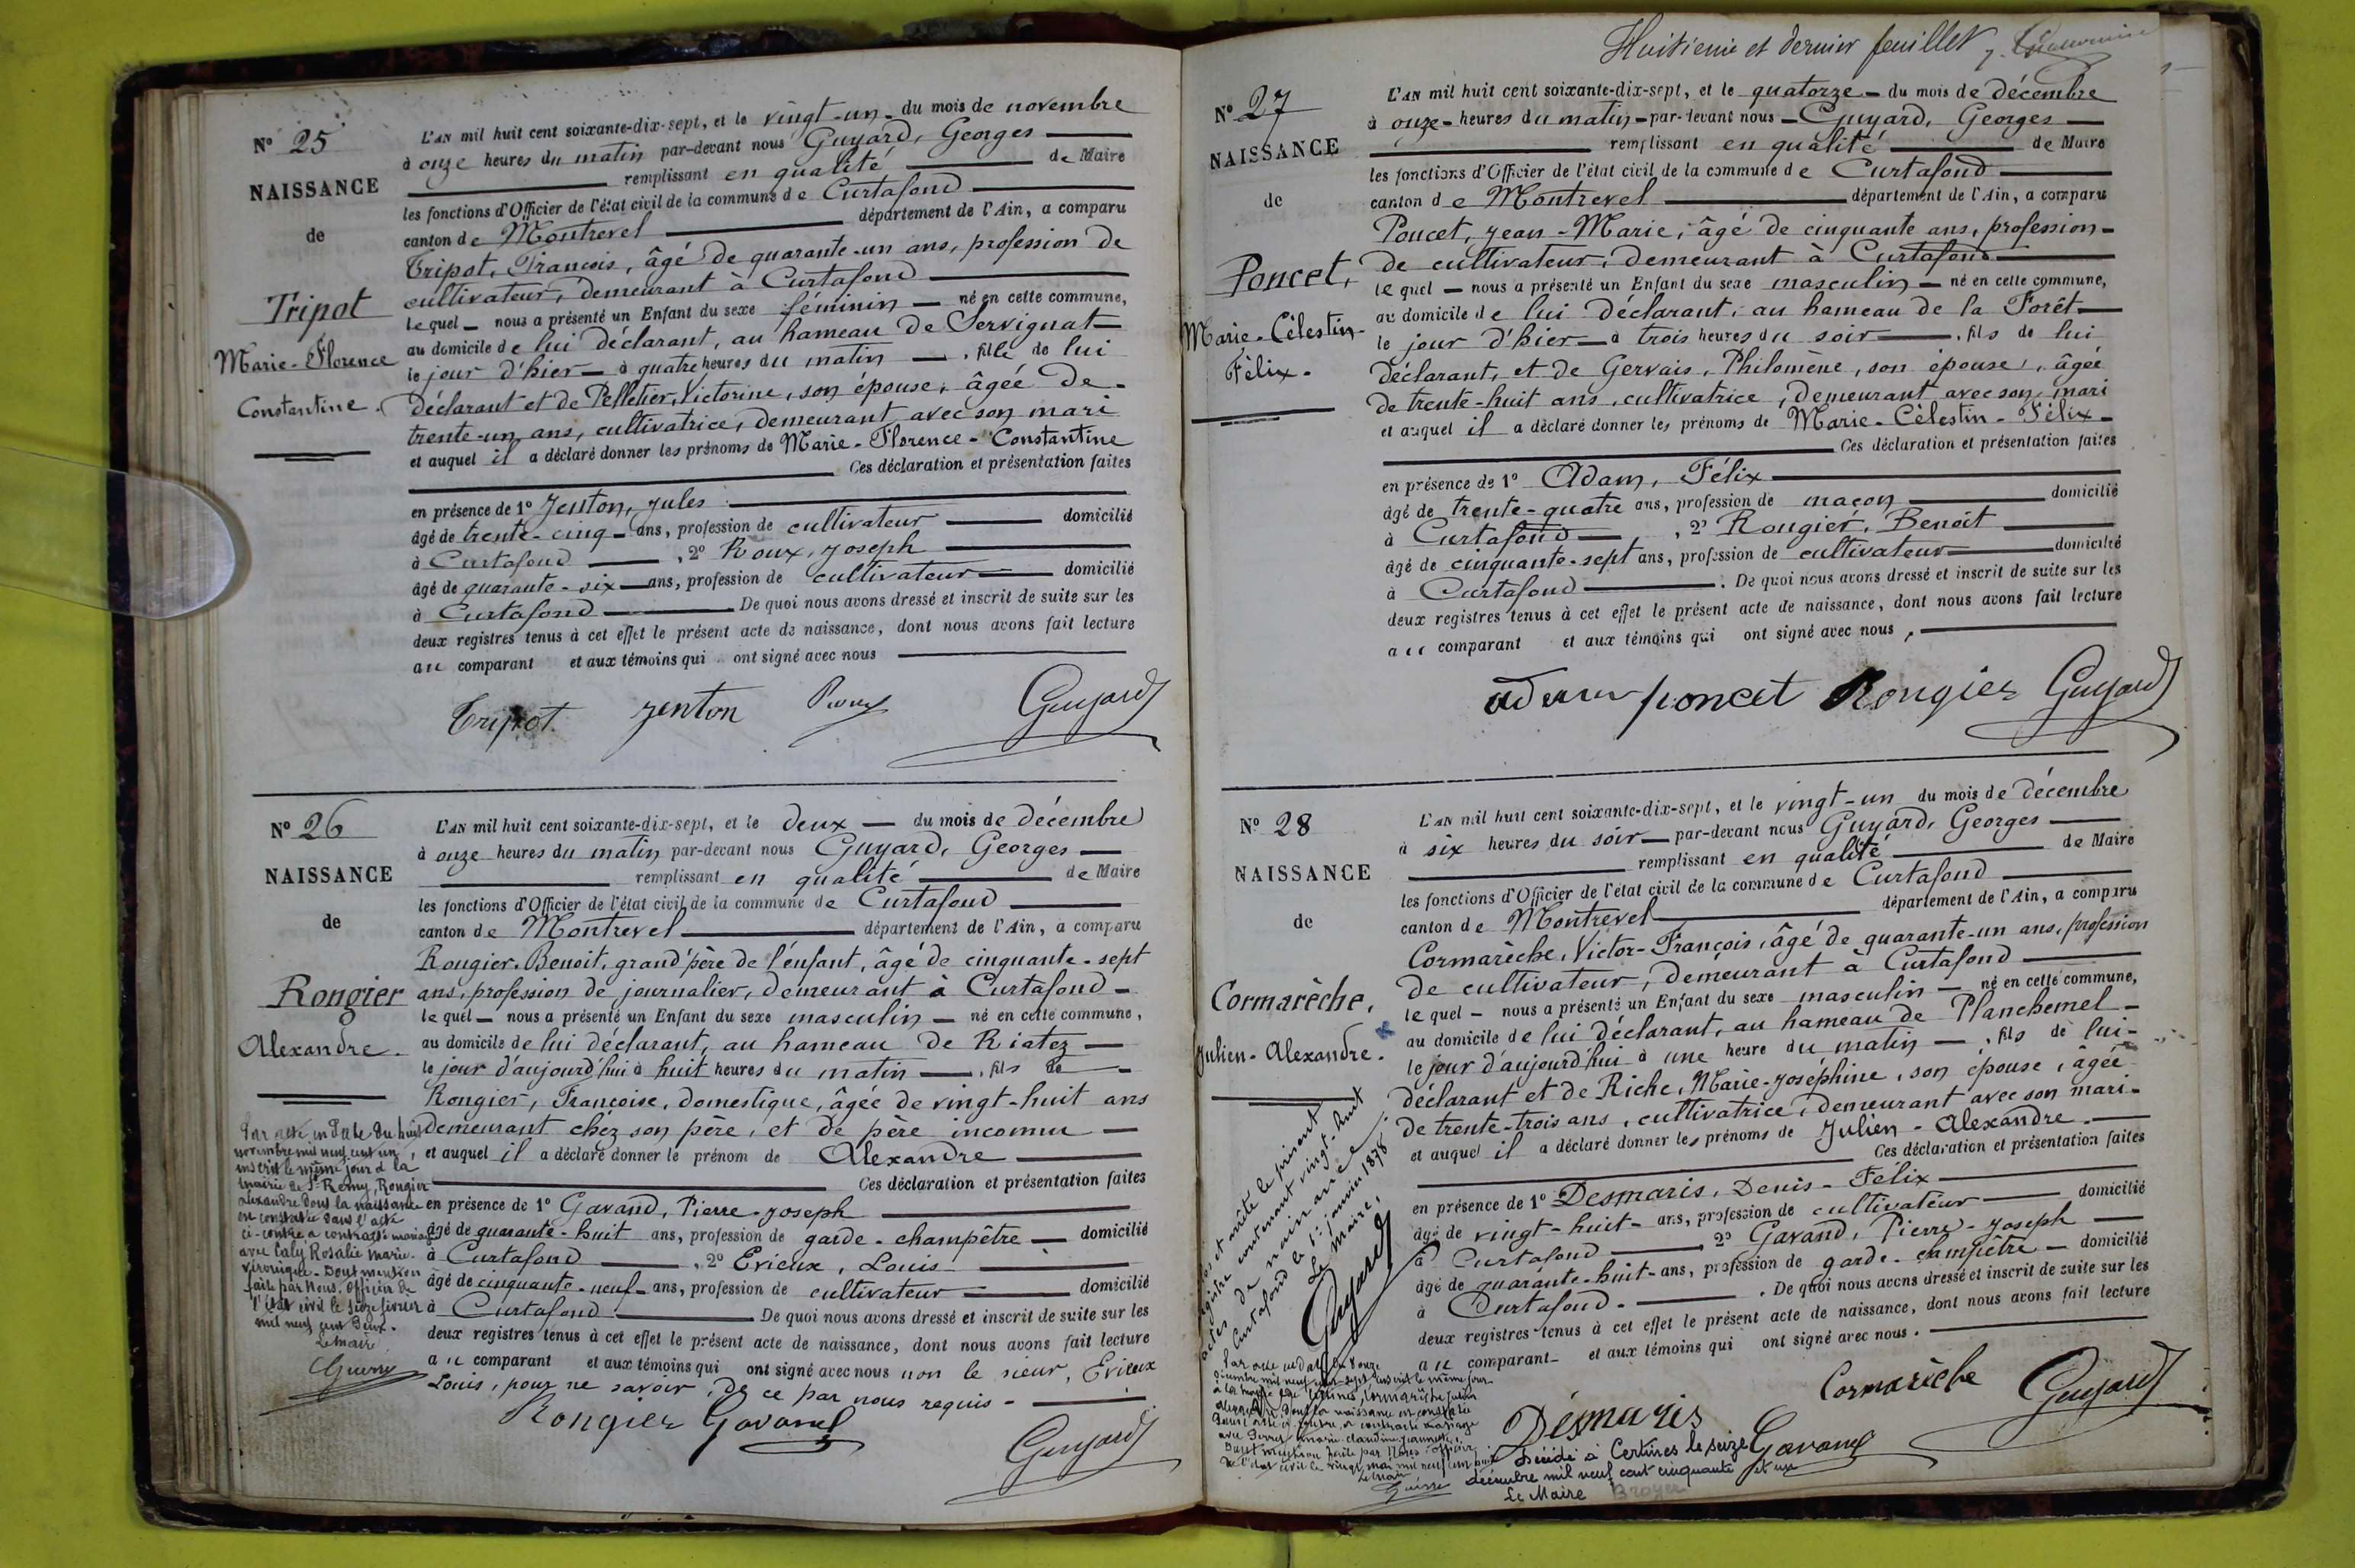 Nº 25
NAISSANCE
de
Tripot
Marie-Florence
Constantine.
L'AN mil huit cent soixante-dix-sept, et le vingt-un du mois de novembre
à onze heures du matin par-devant nous Guyard, Georges
remplissant en qualité de Maire
les fonctions d'Officier de l'état civil de la commune de Curtafond
canton de Montrevel département de l'Ain, a comparu
Tripot, François, âgé de quarante-un ans, profession de
cultivateur, demeurant à Curtafond
lequel nous a présenté un Enfant du sexe féminin né en cette commune,
au domicile de lui déclarant, au hameau de Servignat
le jour d'hier à quatre heures du matin, fille de lui
déclarant et de Pelletier, Victorine, son épouse, âgée de
trente-un ans, cultivatrice, demeurant avec son mari
et auquel il a déclaré donner les prénoms de Marie-Florence-Constantine
Ces déclaration et présentation faites
en présence de 1º Jenton, Jules
âgé de trente-cinq ans, profession de cultivateur domicilié
à Curtafond, 2º Roux, Joseph
âgé de quarante-six ans, profession de cultivateur domicilié
à Curtafond De quoi nous avons dressé et inscrit de suite sur les
deux registres tenus à cet effet le présent acte de naissance, dont nous avons fait lecture
au comparant et aux témoins qui ont signé avec nous
Tripot Jenton Roux Guyard
Nº 26
NAISSANCE
de
Rongier
Alexandre.
L'AN mil huit cent soixante-dix-sept, et le deux du mois de décembre
à onze heures du matin par-devant nous Guyard, Georges
remplissant en qualité de Maire
les fonctions d'Officier de l'état civil de la commune de Curtafond
canton de Montrevel département de l'Ain, a comparu
Rongier, Benoit, grand'père de l'enfant, âgé de cinquante-sept
ans, profession de journalier, demeurant à Curtafond
lequel nous a présenté un Enfant du sexe masculin né en cette commune,
au domicile de lui déclarant, au hameau de Riatez
le jour d'aujourd'hui à huit heures du matin, fils de
Rongier, Françoise, domestique, âgée de vingt-huit ans
demeurant chez son père, et de père inconnu
et auquel il a déclaré donner le prénom de Alexandre
Ces déclaration et présentation faites
en présence de 1º Gavand, Pierre-Joseph
âgé de quarante-huit ans, profession de garde-champêtre domicilié
à Curtafond, 2º Evieux, Louis
âgé de cinquante-neuf ans, profession de cultivateur domicilié
à Curtafond De quoi nous avons dressé et inscrit de suite sur les
deux registres tenus à cet effet le présent acte de naissance, dont nous avons fait lecture
au comparant et aux témoins qui ont signé avec nous non le sieur, Evieux
Louis, pour ne savoir, de ce par nous requis.
Rongier Gavand
Guyard
Par acte en date du huit
novembre mil neuf cent un,
inscrit le même jour à la
mairie de St Remy, Rongier
Alexandre dont la naissance
est constatée dans l'acte
ci-contre a contracté mariage
avec Rosalie Marie-
Véronique. Dont mention
faite par Nous, Officier de
l'état civil le seize février
mil neuf cent deux.
Le Maire
Guerry
Huitième et dernier feuillet
Nº 27
NAISSANCE
de
Poncet,
Marie-Célestin-
Félix.
L'AN mil huit cent soixante-dix-sept, et le quatorze du mois de décembre
à onze heures du matin par-devant nous Guyard, Georges
remplissant en qualité de Maire
les fonctions d'Officier de l'état civil de la commune de Curtafond
canton de Montrevel département de l'Ain, a comparu
Poncet, Jean-Marie, âgé de cinquante ans, profession
de cultivateur, demeurant à Curtafond
lequel nous a présenté un Enfant du sexe masculin né en cette commune,
au domicile de lui déclarant, au hameau de la Forêt
le jour d'hier à trois heures du soir, fils de lui
déclarant, et de Gervais, Philomène, son épouse, âgée
de trente-huit ans, cultivatrice, demeurant avec son mari
et auquel il a déclaré donner les prénoms de Marie-Célestin-Félix
Ces déclaration et présentation faites
en présence de 1º Adam, Félix
âgé de trente-quatre ans, profession de maçon domicilié
à Curtafond, 2º Rongier, Benoit
âgé de cinquante-sept ans, profession de cultivateur domicilié
à Curtafond. De quoi nous avons dressé et inscrit de suite sur les
deux registres tenus à cet effet le présent acte de naissance, dont nous avons fait lecture
au comparant et aux témoins qui ont signé avec nous,
adam poncet Rongier Guyard
Nº 28
NAISSANCE
de
Cormarèche,
Julien-Alexandre.
L'AN mil huit cent soixante-dix-sept, et le vingt-un du mois de décembre
à six heures du soir par-devant nous Guyard, Georges
remplissant en qualité de Maire
les fonctions d'Officier de l'état civil de la commune de Curtafond
canton de Montrevel département de l'Ain, a comparu
Cormarèche, Victor-François, âgé de quarante-un ans, profession
de cultivateur, demeurant à Curtafond
lequel nous a présenté un Enfant du sexe masculin né en cette commune,
au domicile de lui déclarant, au hameau de Planchemel
le jour d'aujourd'hui à une heure du matin, fils de lui
déclarant et de Riche, Marie-Joséphine, son épouse, âgée
de trente-trois ans, cultivatrice, demeurant avec son mari
et auquel il a déclaré donner les prénoms de Julien-Alexandre.
Ces déclaration et présentation faites
en présence de 1º Desmaris, Denis-Félix
âgé de vingt-huit ans, profession de cultivateur domicilié
à Curtafond 2º Gavand, Pierre-Joseph
âgé de quarante-huit ans, profession de garde-champêtre domicilié
à Curtafond. De quoi nous avons dressé et inscrit de suite sur les
deux registres tenus à cet effet le présent acte de naissance, dont nous avons fait lecture
au comparant et aux témoins qui ont signé avec nous.
Cormarèche Guyard
Désmaris
Gavand
Clos et arrêté le présent
registre contenant vingt-huit
actes de naissance
Curtafond le 1er janvier 1878
Le Maire,
Guyard
Par acte en date du douze
décembre mil neuf cent sept inscrit le même jour
à la mairie de Certines, Cormarèche Julien
Alexandre, dont la naissance est constatée
dans l'acte ci-contre, a contracté mariage
avec Perret Marie-Claudine-Jeannette.
Dont mention faite par Nous, officier
de l'état civil le vingt mai mil neuf cent huit
Le Maire
Décédé à Certines le seize
décembre mil neuf cent cinquante et un
Le Maire Broyer